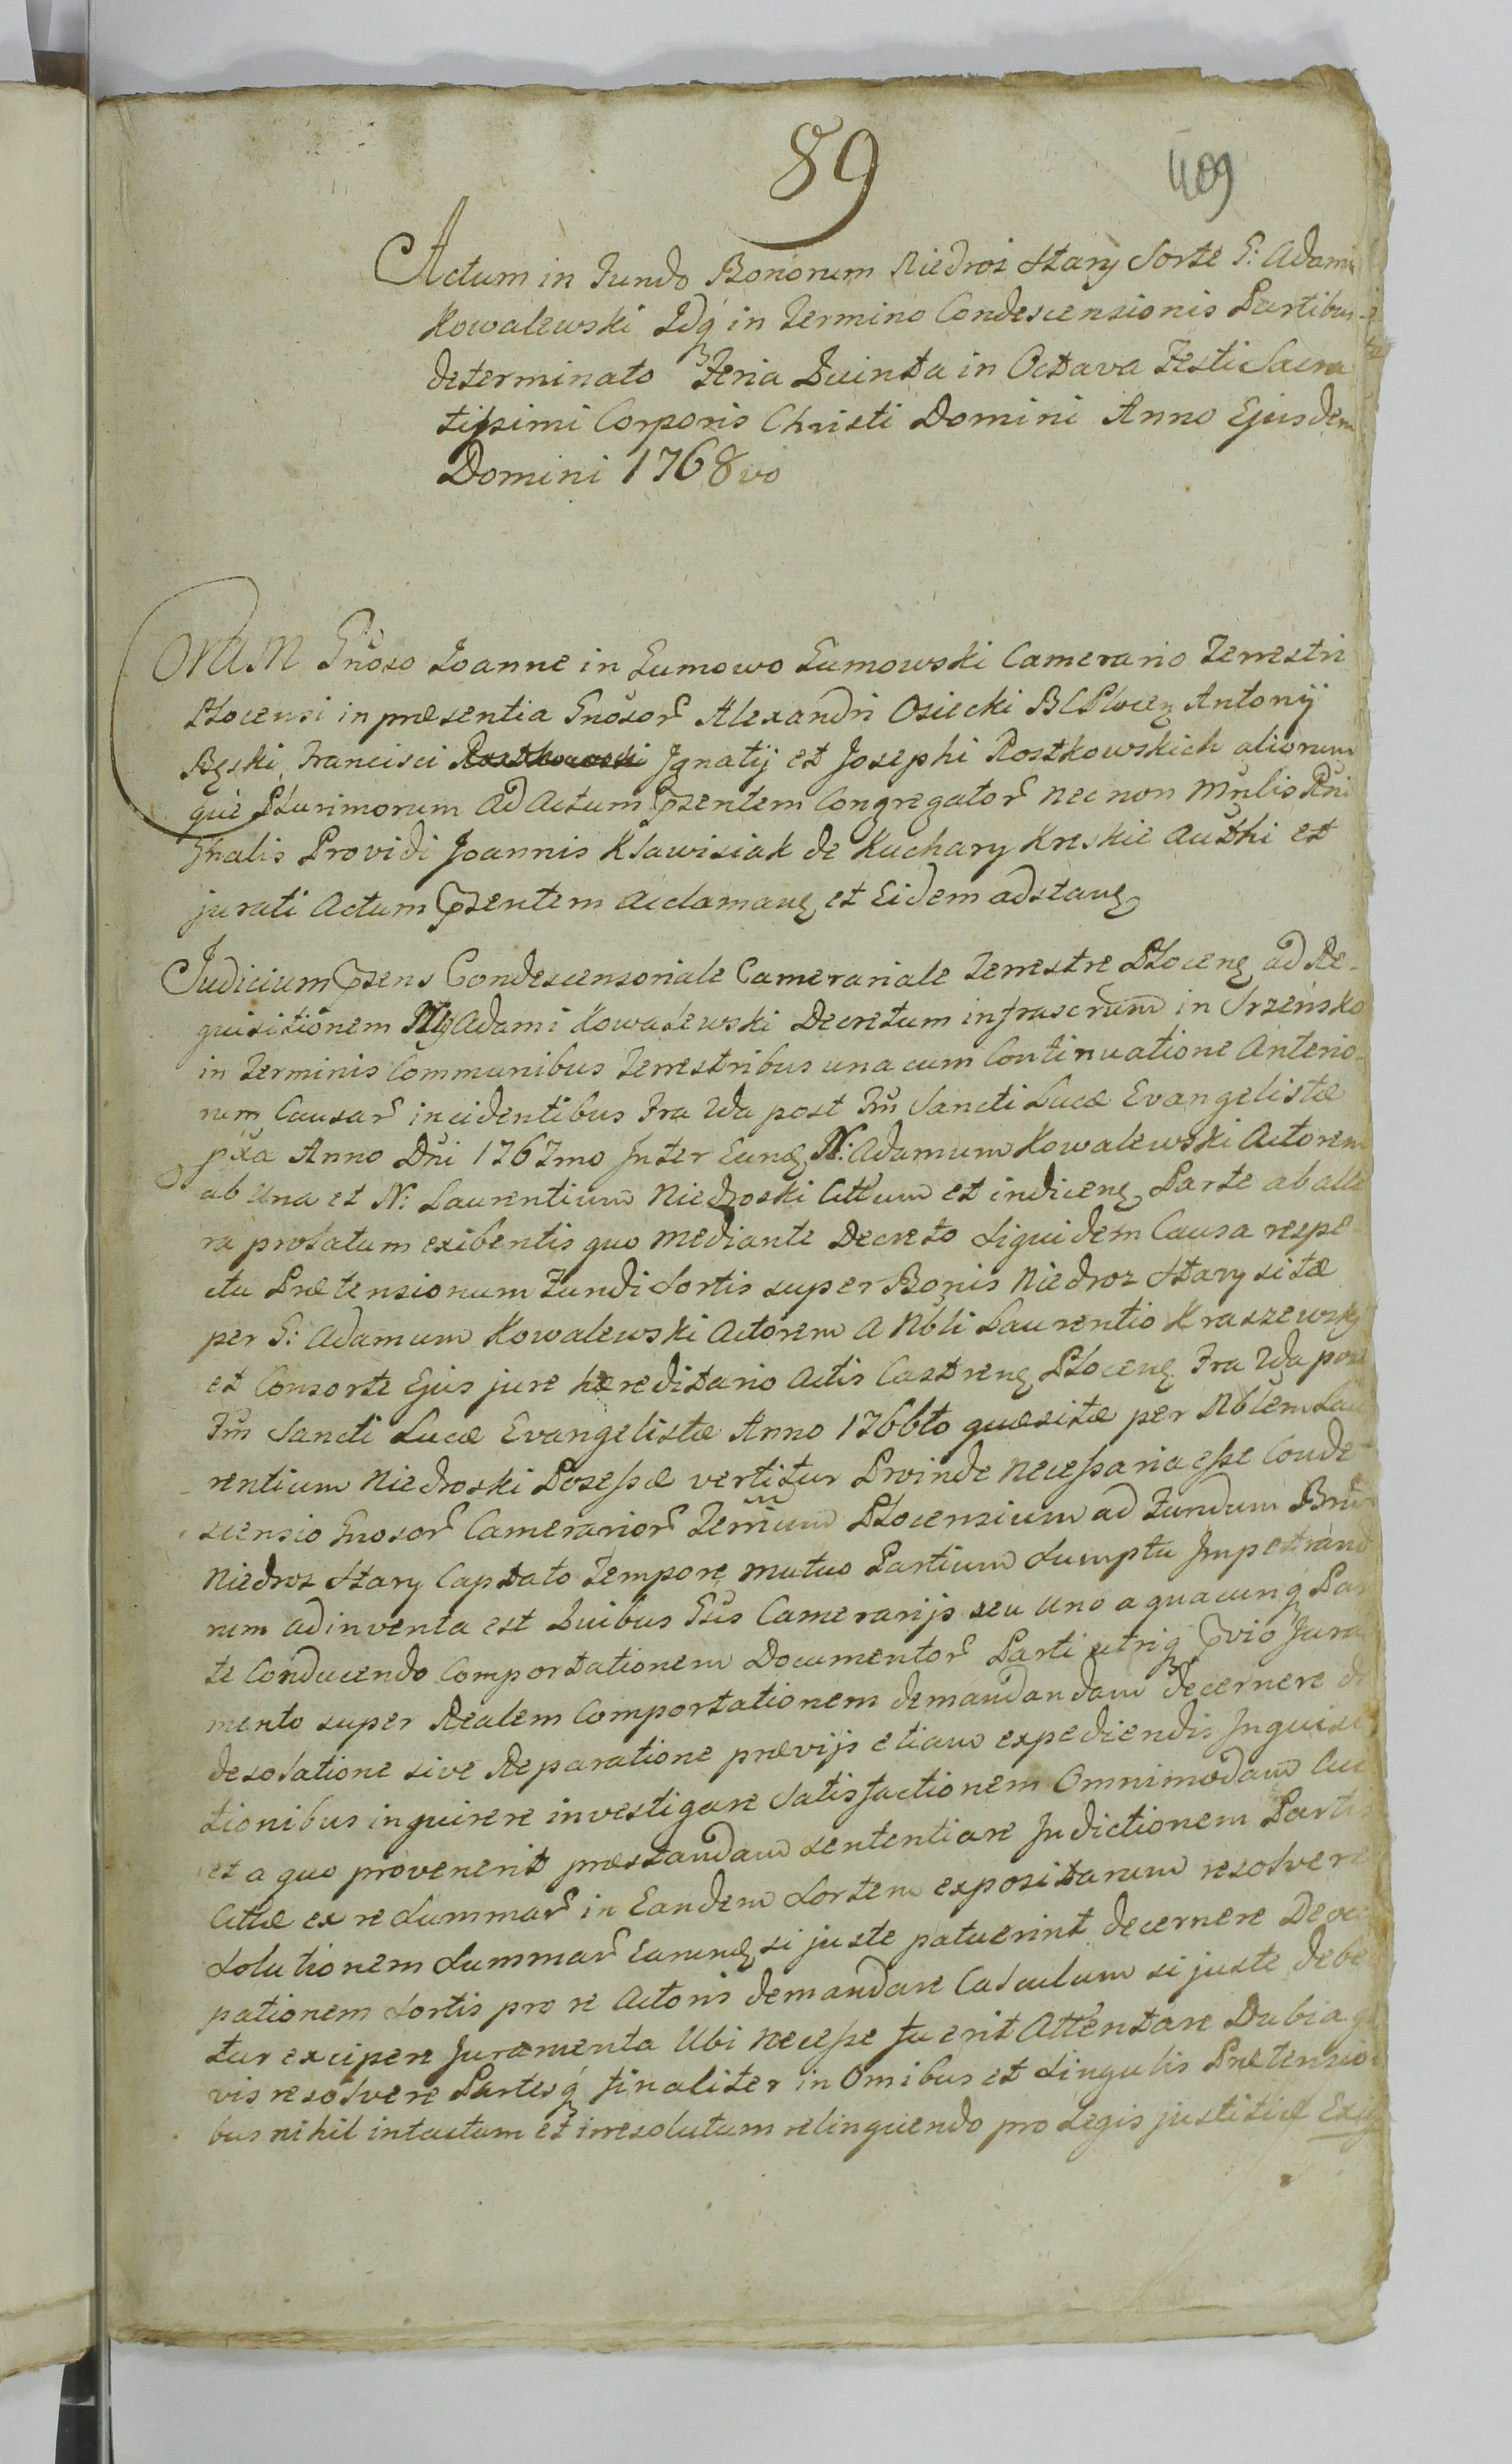 89
409
Actum in Fundo Bonorum Niedroż Stary Sorte G: Adami
Kowalewski Idq́ in Termino Condescensionis Partibus
determinato Feria Quinta in Octava Festi Sacra
tissimi Corporis Christi Domini Anno Ejusdem
Domini 1768vo
Coram Gnoso Joanne in Łumowo Łumowski Camerario Terrestri
Plocensi in præsentia Gnosor Alexandri Osiecki BCPłocen Antonij
Bęski, Francisci Ignatij et Josephi Rostkowskich aliorum
que Plurimorum ad Actum Pzentem Congregator nec non Mnlis Rni
Gnalis Providi Joannis Kławisiak de Kuchary Kreskie Authi et
jurati Actum Pzentem acclaman et Eidem adstan
Judicium Pzens Condescensoriale Camerariale Terrestre Plocen ad Re-
quisitionem Adami Kowalewski Decretum infrascrum in Srzeńsko
in Terminis Communibus Terrestribus una cum Continuatione Anterio-
rum Causar incidentibus Fra 2da post Fm Sancti Lucæ Evangelistæ
pxa Anno Dni 1767mo Inter Eund N: Adamum Kowalewski Actorem
ab una et N: Laurentium Niedroski Cittum et indicen Parte ab alte
ra prolatum exibentis quo mediante Decreto Siquidem Causa respe
ctu Prætensionum Fundi Sortis super Bonis Niedroz Stary sitæ
per G: Adamum Kowalewski Actorem a Nbli Laurentio Kraszewski
et Consorte Ejus jure hæreditario Actis Castren Plocen Fra 2da post
Fm Sancti Lucæ Evangelistæ Anno 1766to quæsitæ per Nblem Lau
rentium Niedroski Posessæ vertitur Proinde necessaria esse Conde
scensio Gnosor Camerarior Terrium Plocensium ad Fundum Bnrum
Niedroz Stary Captato Tempore mutuo Partium Sumptu Impetrand
rum adinventa est Quibus Gsis Camerarijs seu uno a quacunq́ Par
te Conducendo Comportationem Documentor Parti utriq́ Pvio Jura
mento super Realem Comportationem demandandam decernere de
desolatione sive Reparatione prævijs etiam expediendis Inquisi
tionibus inquirere investigare Satisfactionem Omnimodam Cui
et a quo provenerit præstandam sententiare Indictionem Partis
Cittæ ex re Summar in Eandem Sortem expositarum resolvere
Solutionem Summar Earund si juste patuerint decernere Deocu
pationem Sortis pro re Actoris demandare Calculum si juste debe
tur excipere Juramenta Ubi necesse fuerit Attentare Dubia q
vis resolvere Partesq́ finaliter in Omibus et Singulis Prætensio
bus nihil intactum et irresolutum relinquendo pro Legis justitiæ Exig